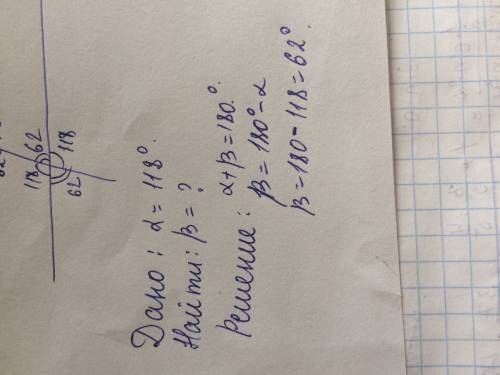 62
118
118
62
Дано: α = 118°.
Найти: β = ?
Решение: α+β=180.°
β = 180°-α
β=180-118=62°.